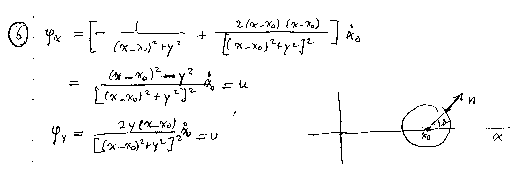 ⑥ φₓ = [ - 1/((x-x₀)²+y²) + 2(x-x₀)(x-x₀)/[(x-x₀)²+y²]² ] ẋ₀
= ((x-x₀)²-y²)/[(x-x₀)²+y²]² ẋ₀ = u
φᵧ = 2y(x-x₀)/[(x-x₀)²+y²]² ẋ₀ = u
n
x₀
x